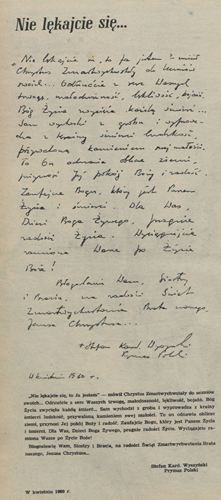 Nie lękajcie się...
„Nie lękajcie się, to Ja jestem" — mówił
Chrystus Zmartwychwstały do uczniów
swoich... Odrzućcie z serc Waszych
trwogę, małoduszność, lękliwość, bojaźń.
Bóg Życia zwycięża każdą śmierć...
Sam wychodzi z grobu i wyprowa-
dza z krainy śmierci ludzkość,
przywaloną kamieniem swej małości.
To On odwala oblicze ziemi,
przynosi Jej pokój Boży i radość.
Zaufajcie Bogu, który jest Panem
Życia i śmierci. Dla Was,
Dzieci Boga Żywego, pragnie
radości Życia. Wyciągnijcie
ramiona Wasze po Życie
Boże!
Błogosławię Wam, Siostry
i Bracia, na radości Świąt
Zmartwychwstania Brata naszego,
Jezusa Chrystusa...
+ Stefan Kard. Wyszyński
Prymas Polski
„Nie lękajcie się, to Ja jestem" — mówił Chrystus Zmartwychwstały do uczniów
swoich... Odrzućcie z serc Waszych trwogę, małoduszność, lękliwość, bojaźń. Bóg
Życia zwycięża każdą śmierć... Sam wychodzi z grobu i wyprowadza z krainy
śmierci ludzkość, przywaloną kamieniem swej małości. To on odwala oblicze
ziemi, przynosi Jej pokój Boży i radość. Zaufajcie Bogu, który jest Panem Życia
i śmierci. Dla Was, Dzieci Boga Żywego, pragnie radości Życia. Wyciągnijcie ra-
miona Wasze po Życie Boże!
Błogosławię Wam, Siostry i Bracia, na radości Świąt Zmartwychwstania Brata na-
szego, Jezusa Chrystusa...
Stefan Kard. Wyszyński
Prymas Polski
W kwietniu 1980 r.